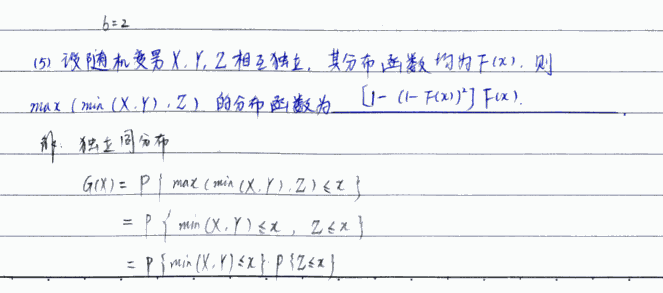 b=2
(5) 设随机变量 X, Y, Z 相互独立, 其分布函数均为 F(x). 则
max (min (X.Y), Z) 的分布函数为 [1- (1- F(x))²] F(x).
解. 独立同分布
G(X) = P { max (min (X.Y), Z) ≤ x }
= P { min (X, Y) ≤ x , Z ≤ x }
= P { min (X, Y) ≤ x } · P { Z ≤ x }